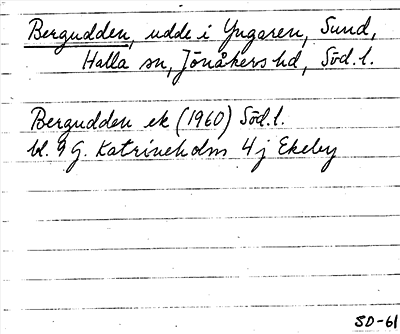 Bergudden, udde i Yngaren, Sund,
Halla sn, Jönåkers hd, Söd. l.
Bergudden ek (1960) Söd. l.
bl. 9 G. Katrineholm 4 j Ekeby
SD-61